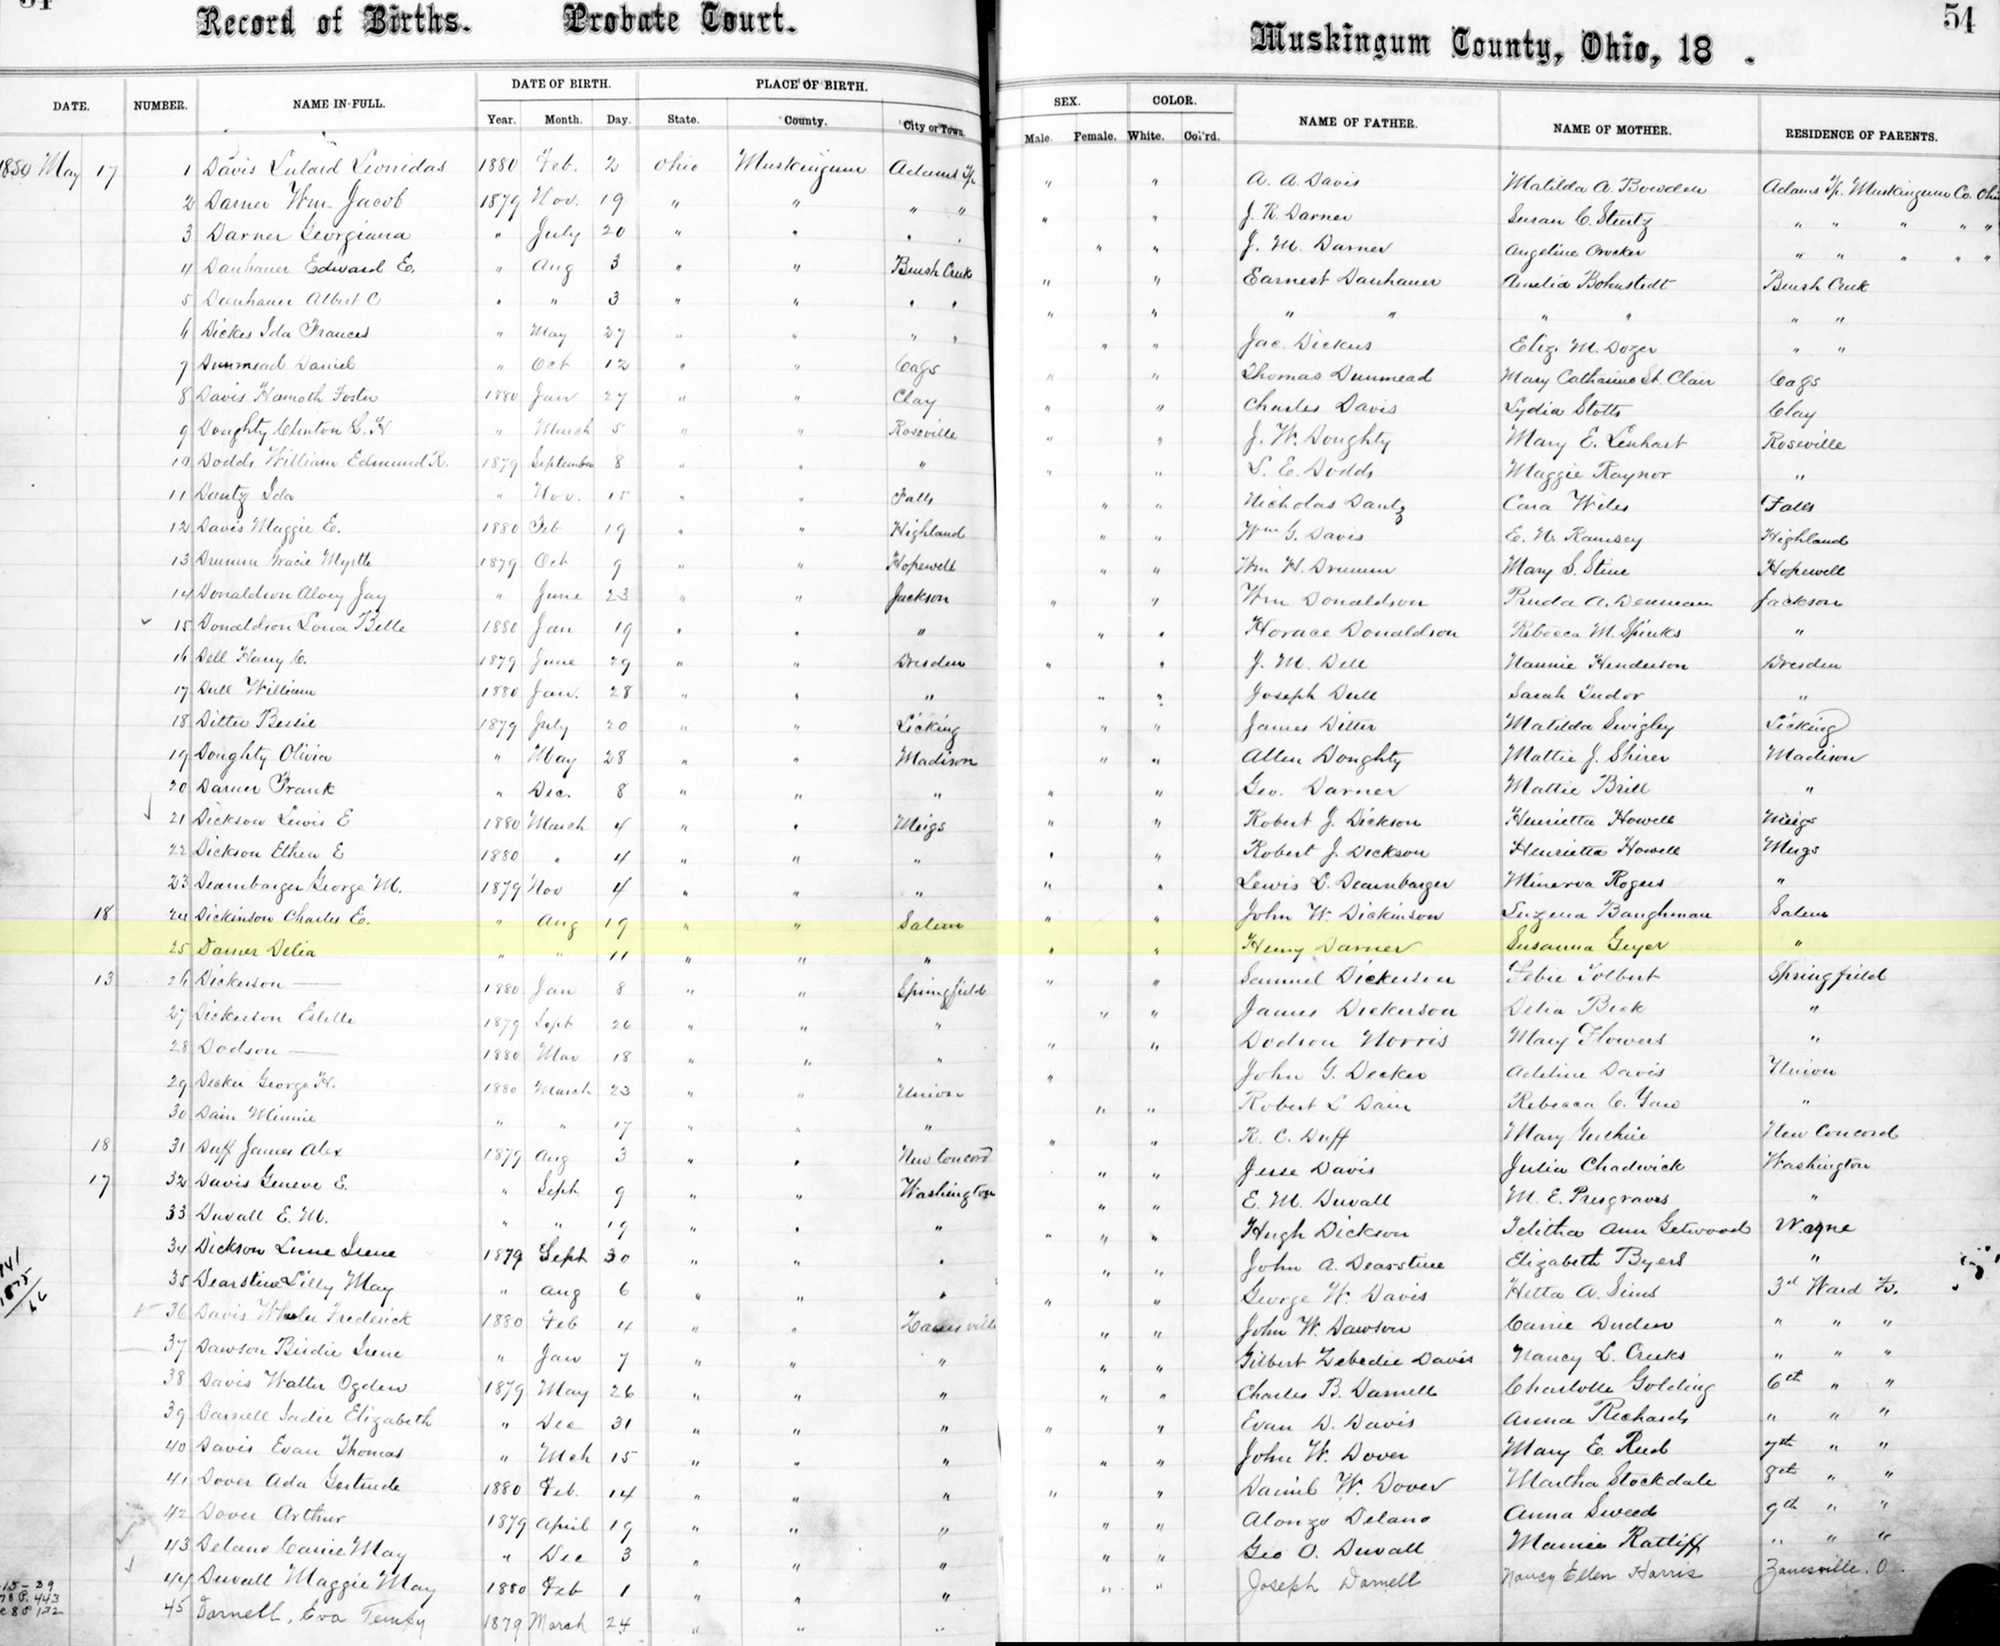 54
Record of Births. Probate Court.
Muskingum County, Ohio, 18 .
54
DATE. NUMBER. NAME IN FULL. DATE OF BIRTH. PLACE OF BIRTH. SEX. COLOR. NAME OF FATHER. NAME OF MOTHER. RESIDENCE OF PARENTS.
Year. Month. Day. State. County. City or Town. Male. Female. White. Col'rd.
1880 May 17 1 Davis Lulard Leonidas 1880 Feb. 2 Ohio Muskingum Adams Tp " " A. A. Davis Matilda A. Bowden Adams Tp. Muskingum Co. Ohio
2 Darner Wm. Jacob 1879 Nov. 19 " " " " " " J. R. Darner Susan C. Stertz " " " " "
3 Darner Georgiana " July 20 " " " " " " J. M. Darner Angeline Crocker " " " " "
4 Danhauer Edward E. " Aug 3 " " Brush Creek " " Earnest Danhauer Amelia Bohnstedt Brush Creek
5 Danhauer Albert C " " 3 " " " " " " " " " " " "
6 Dickes Ida Frances " May 27 " " " " " " Jac. Dickes Eliz. M. Dozer " "
7 Dunmead Daniel " Oct 12 " " Cass " " Thomas Dunmead Mary Catharine St. Clair Cass
8 Davis Foster 1880 Jan 27 " " Clay " " Charles Davis Lydia Stotts Clay
9 Doughty Clinton L. H " March 5 " " Roseville " " J. W. Doughty Mary E. Lenhart Roseville
10 Dodds William Edmund R. 1879 September 8 " " " " " L. E. Dodds Maggie Raynor "
11 Dantz Ida " Nov. 15 " " Falls " " Nicholas Dantz Cara Wiles Falls
12 Davis Maggie E. 1880 Feb 19 " " Highland " " Wm G. Davis E. N. Ramsey Highland
13 Drumm Gracie Myrtle 1879 Oct 9 " " Hopewell " " Wm H. Drumm Mary S. Stine Hopewell
14 Donaldson Alvey Jay " June 23 " " Jackson " " Wm Donaldson Pruda A. Denman Jackson
15 Donaldson Lona Belle 1880 Jan 19 " " " " " Horace Donaldson Rebecca M. Spirks "
16 Dell Harry C. 1879 June 29 " " Dresden " " J. M. Dell Nannie Henderson Dresden
17 Dull William 1880 Jan. 28 " " " " " Joseph Dull Sarah Tudor "
18 Ditter Bessie 1879 July 20 " " Licking " " James Ditter Matilda Swigley Licking
19 Doughty Olivia " May 28 " " Madison " " Allen Doughty Mattie J. Shirer Madison
20 Darner Frank " Dec. 8 " " " " " Geo. Darner Mattie Brill "
21 Dickson Lewis E 1880 March 4 " " Meigs " " Robert J. Dickson Henrietta Howell Meigs
22 Dickson Ethen E 1880 " 4 " " " " " Robert J. Dickson Henrietta Howell Meigs
23 Dearnbarger George M. 1879 Nov 4 " " " " " Lewis L. Dearnbarger Minerva Rogers "
18 24 Dickinson Charles E. " Aug 19 " " Salem " " John W. Dickinson Luzena Baughman Salem
25 Darner Delia " " 11 " " " " " Henry Darner Susanna Geyer "
13 26 Dickerson — 1880 Jan 8 " " Springfield " " Samuel Dickerson Febie Tolbert Springfield
27 Dickerson Estelle 1879 Sept 26 " " " " " James Dickerson Delia Beck "
28 Dodson — 1880 Mar 18 " " " " " Dodson Norris Mary Flowers "
29 Decker George H. 1880 March 23 " " Union " John G. Decker Adeline Davis Union
30 Dain Minnie " " 17 " " " " " Robert L Dain Rebecca C. Gaw "
18 31 Duff James Alex 1879 Aug 3 " " New Concord " " R. C. Duff Mary Guthrie New Concord
17 32 Davis Geneve E. " Sept 9 " " Washington " " Jesse Davis Julia Chadwick Washington
33 Duvall E. M. " " 19 " " " " " E. M. Duvall M. E. Presgraves "
34 Dickson Lune Irene 1879 Sept 30 " " " " " " Hugh Dickson Telitha Ann Getwood Wayne
35 Dearstine Lilly May " Aug 6 " " " " " John A. Dearstine Elizabeth Byers "
36 Davis Wheeler Frederick 1880 Feb 4 " " Zanesville " " George W. Davis Hetta A. Sims 3d Ward Z.
37 Dawson Birdie Irene " Jan 7 " " " " " John W. Dawson Carrie Duden " " "
38 Davis Walter Ogden 1879 May 26 " " " " " Gilbert Zebedie Davis Nancy L. Creeks " " "
39 Darnell Sadie Elizabeth " Dec 31 " " " " " Charles B. Darnell Charlotte Golding 6th " "
40 Davis Evan Thomas " Mch 15 " " " " " Evan D. Davis Anna Richards " " "
41 Dover Ada Gertrude 1880 Feb. 14 " " " " " John W. Dover Mary E. Reed 7th " "
42 Dover Arthur 1879 April 19 " " " " " Daniel W. Dover Martha Stockdale 8th " "
43 Delano Carrie May " Dec 3 " " " " " Alonzo Delano Anna Sweeds 9th " "
44 Duvall Maggie May 1880 Feb 1 " " " " " Geo O. Duvall Mamie Ratliff " " "
45 Darnell, Eva Tempy 1879 March 24 " " " " " Joseph Darnell Nancy Ellen Harris Zanesville. O.